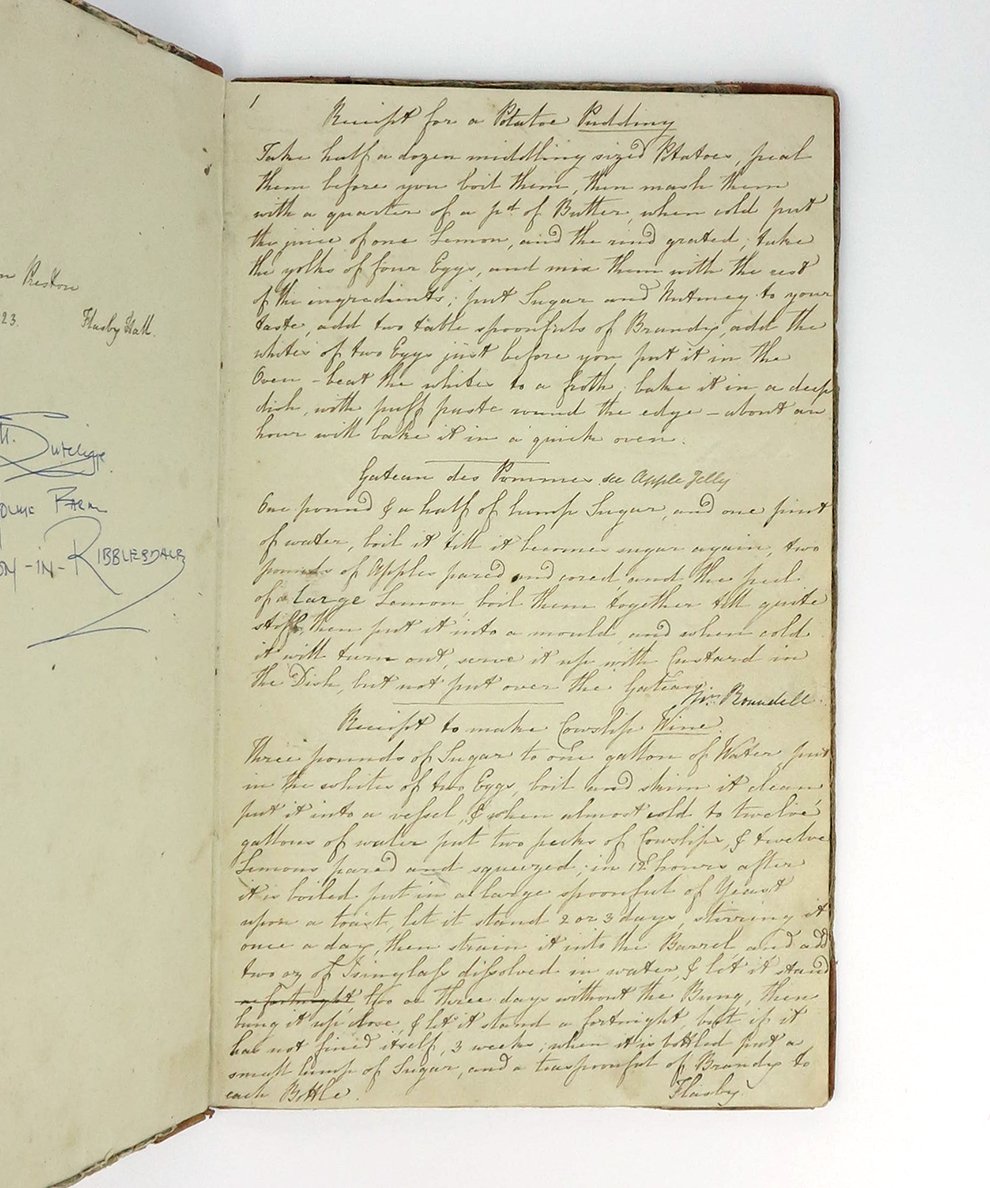 Preston
23. Flasby Hall.
Sutcliffe
Farm
-in-Ribblesdale
1
Receipt for a Potatoe Pudding
Take half a dozen middling sized Ptatoes, peal
them before you boil them, then mash them
with a quarter of a pd. of Butter, when cold put
the juice of one Lemon, and the rind grated; take
the yolks of four Eggs, and mix them with the rest
of the ingredients; put Sugar and Nutmeg to your
taste, add two table spoonfuls of Brandy, add the
whites of two Eggs just before you put it in the
Oven - beat the whites to a froth; bake it in a deep
dish, with puff paste round the edge - about an
hour will bake it in a quick oven.
Gateau des Pommes see Apple Jelly
One pound & a half of lump Sugar, and one pint
of water, boil it till it becomes sugar again, two
pounds of Apples pared and cored and the peel
of a large Lemon boil them together till quite
stiff, then put it into a mould and when cold
it will turn out, serve it up with Custard in
the Dish, but not put over the Gateau.
Roundell.
Receipt to make Cowslip Wine.
Three pounds of Sugar to one gallon of Water, put
in the whites of two Eggs, boil and skim it clean
put it into a vessel, & when almost cold to twelve
gallons of water put two pecks of Cowslips, & twelve
Lemons pared and squeezed; in 12 hours after
it is boiled put in a large spoonful of Yeast
upon a toast, let it stand 2 or 3 days, stirring it
once a day, then strain it into the Barrel and add
two oz of Isinglass dissolved in water, & let it stand
a fortnight, two or three days without the Bung, then
bung it up close, & let it stand a fortnight, but if it
has not fined itself, 3 weeks; when it is bottled put a
small lump of Sugar, and a teaspoonful of Brandy to
each Bottle. Flasby.